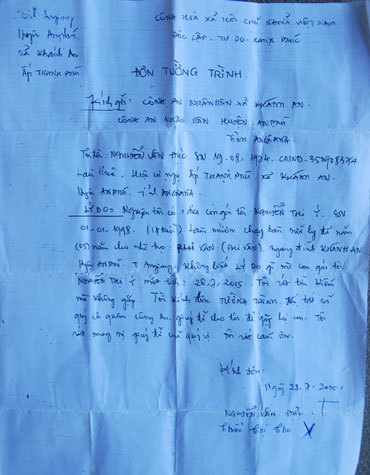 Tỉnh Angiang
Huyện Anphú
xã Khánh An
Ấp THANH PHÚ
CỘNG HÒA XÃ HỘI CHỦ NGHĨA VIỆT NAM
ĐỘC LẬP - TỰ DO - HẠNH PHÚC
ĐƠN TƯỜNG TRÌNH.
Kính gởi: CÔNG AN NHÂN DÂN XÃ KHÁNH AN.
CÔNG AN NHÂN DÂN HUYỆN ANPHÚ
Tỉnh ANGIANG.
Tôi tên NGUYỄN VĂN ĐỨC SN 19.08.1974. CMND.
Làm thuê. Hiện cư ngụ ấp THANH PHÚ xã KHÁNH AN.
Huyện ANPHÚ. Tỉnh ANGIANG.
LÝ DO: Nguyên tôi có 1 đứa con gái tên NGUYỄN THỊ Ý. SN
01.01.1998. (17 tuổi) làm mướn
(05) năm cho chủ KHÁNH AN
Huyện ANPHÚ. T Angiang. Không biết lý do gì mà con gái tôi
NGUYỄN THỊ Ý mất tích: 28.7.2015. Tôi tìm kiếm
mà không gặp. Tôi kính đơn TƯỜNG TRÌNH
quý cơ quan công an giúp đỡ cho tôi để gặp lại con. Tôi
rất mong sự giúp đỡ của quý vị. Tôi rất cám ơn.
Kính đơn.
Ngày 29.7.2015.
NGUYỄN VĂN ĐỨC.